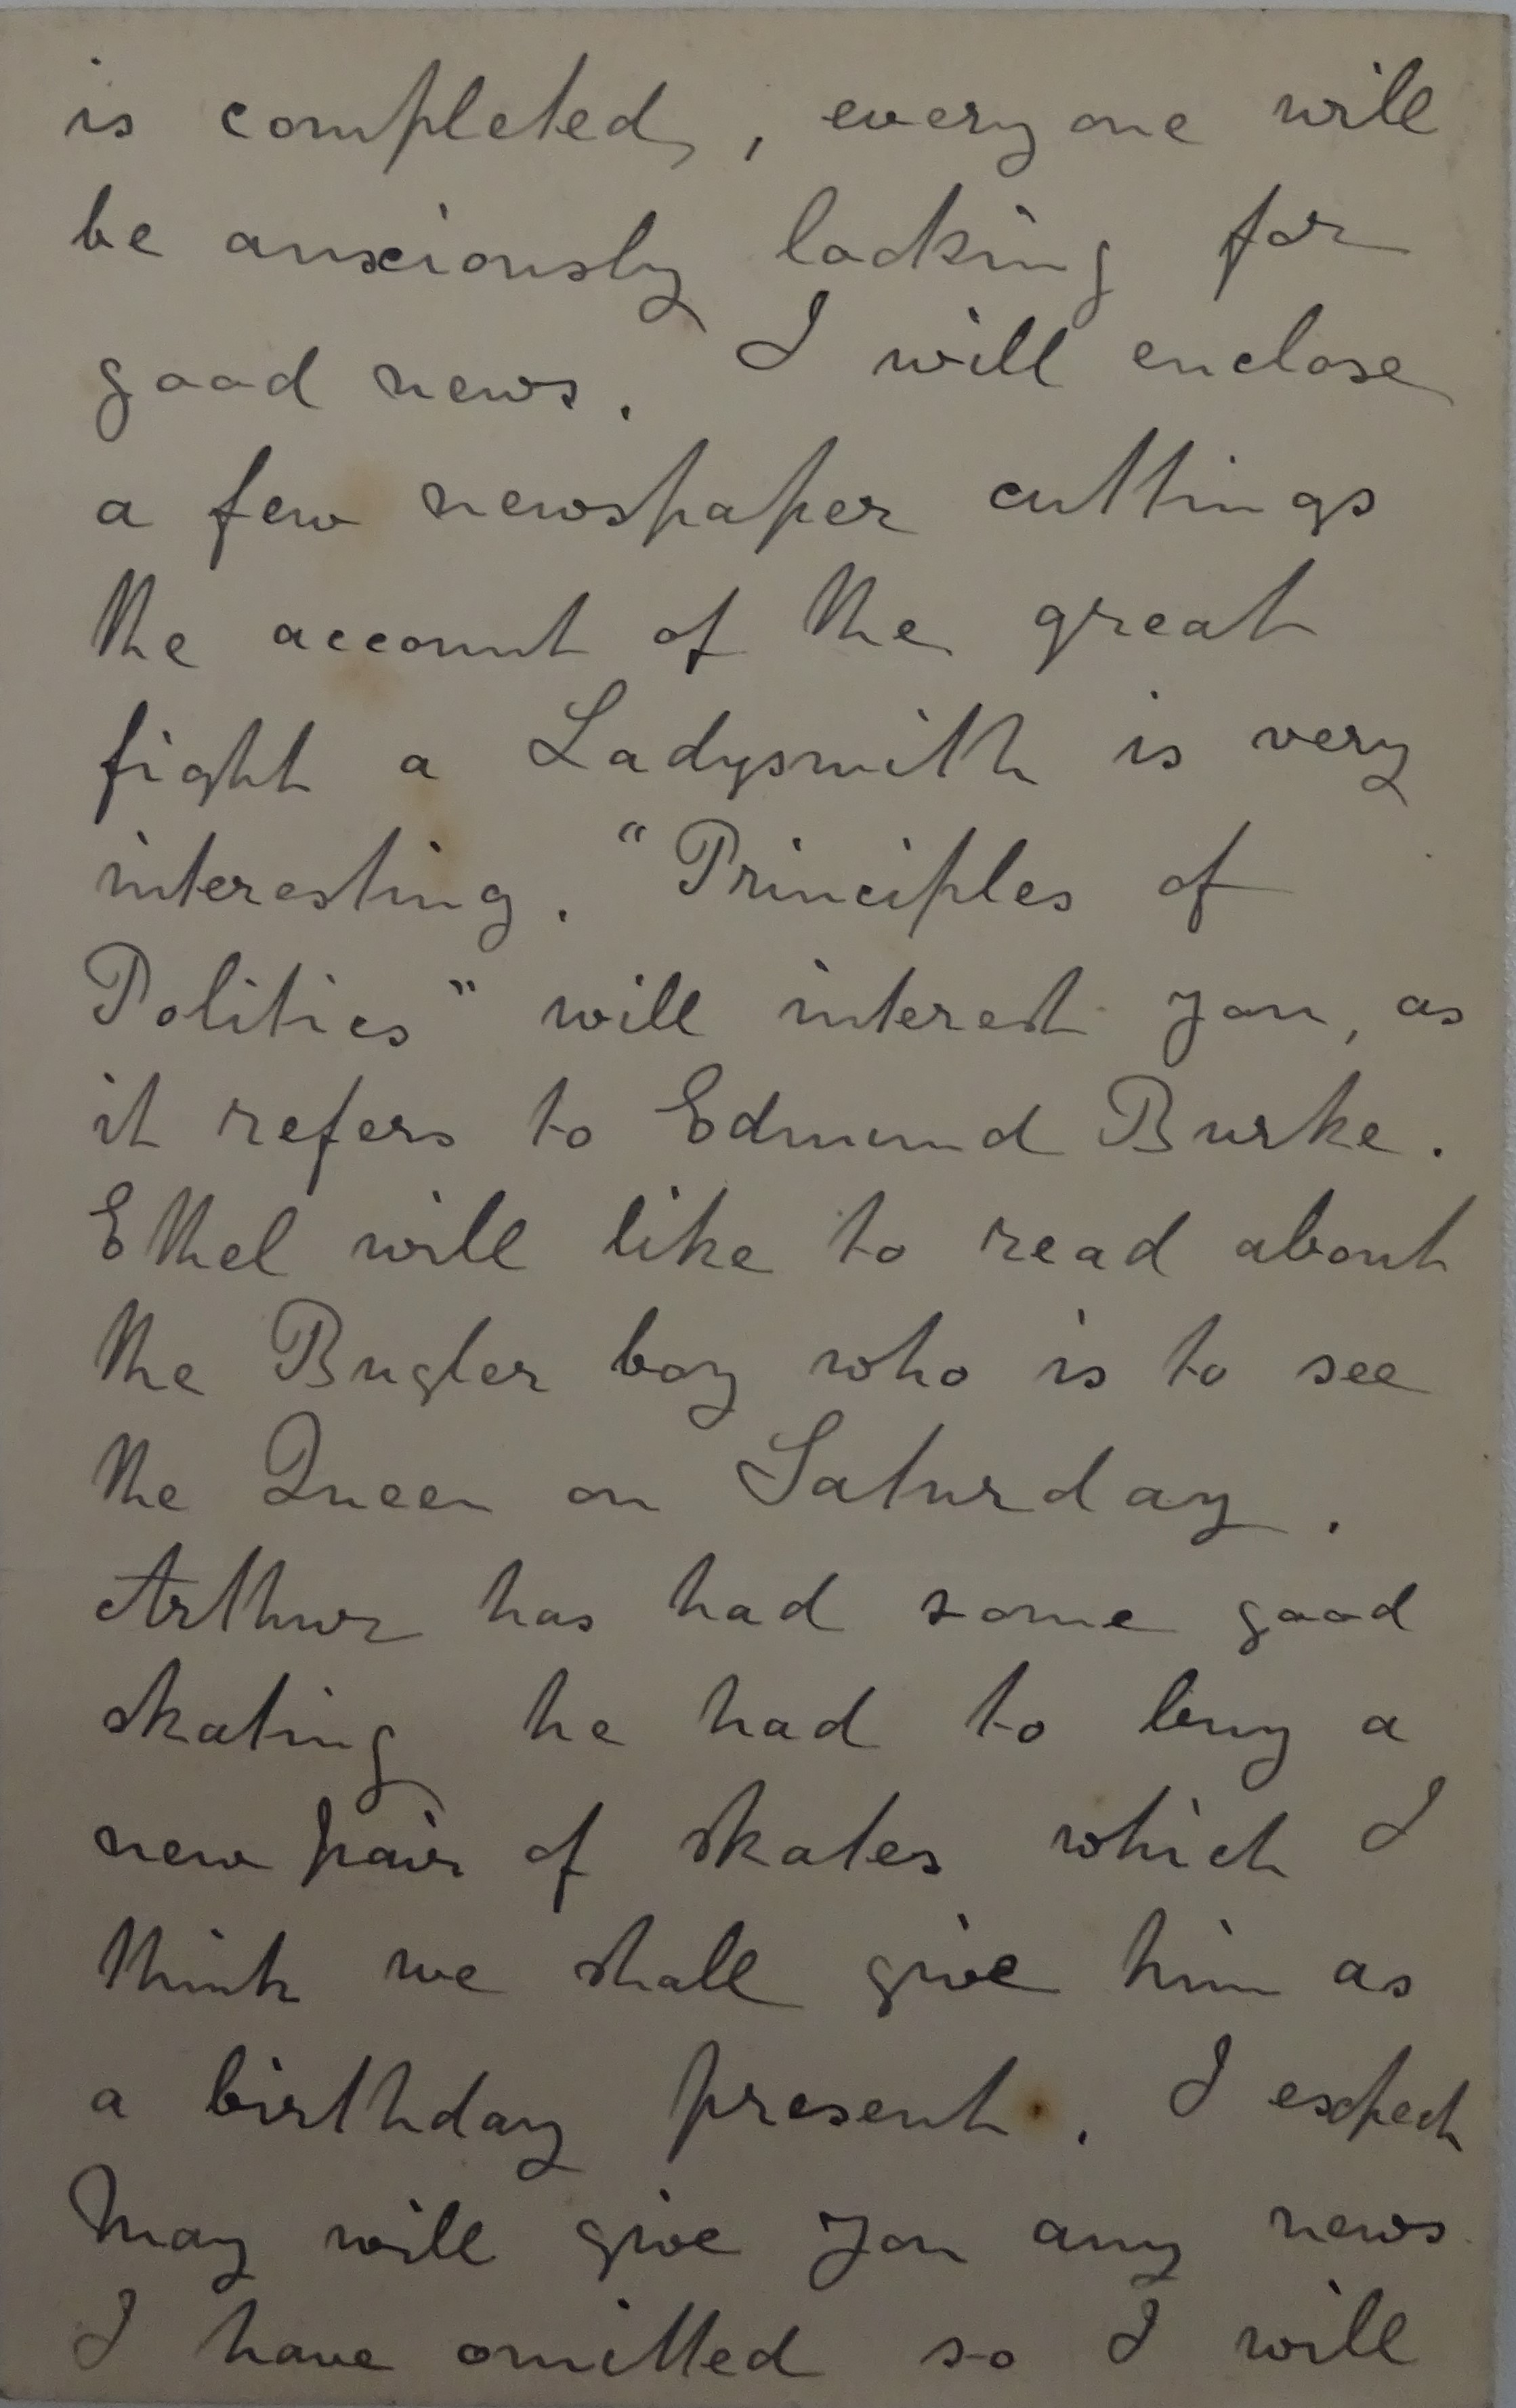 is completed, everyone will
be anxiously looking for
good news. I will enclose
a few newspaper cuttings
the account of the great
fight a Ladysmith is very
interesting. "Principles of
Politics" will interest you, as
it refers to Edmund Burke.
Ethel will like to read about
the Bugler boy who is to see
the Queen on Saturday.
Arthur has had some good
skating he had to buy a
new pair of skates which I
think we shall give him as
a birthday present. I expect
May will give you any news
I have omitted so I will